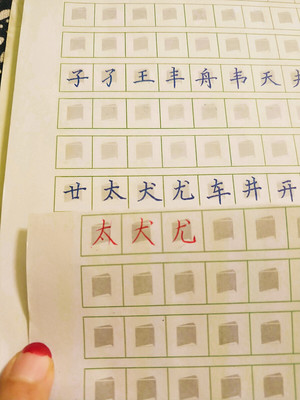 子孑王丰舟韦天
廿太犬尤车井开
太犬尤